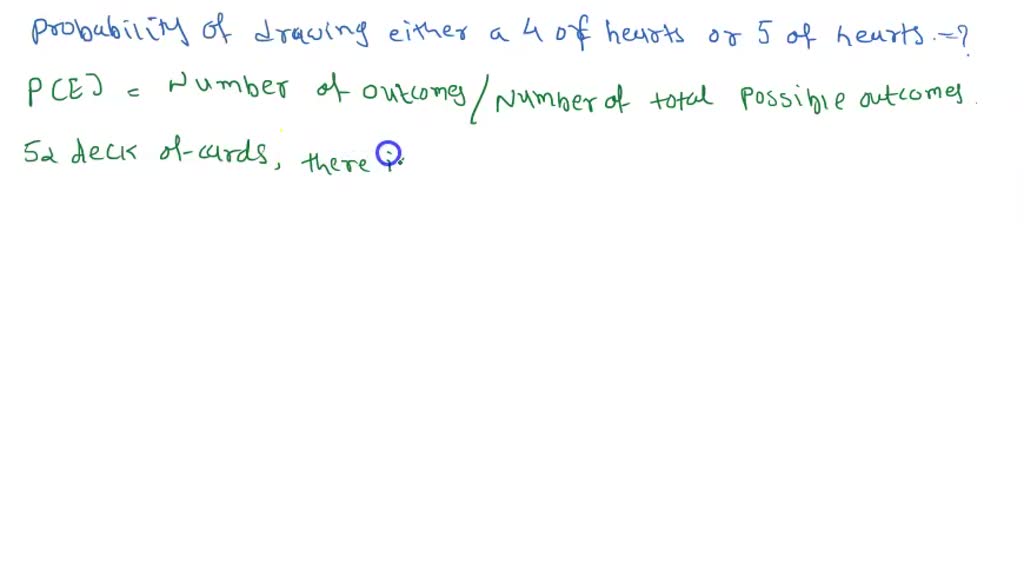 Probability of drawing either a 4 of hearts or 5 of hearts.=?
P(E) = Number of outcomes/Number of total possible outcomes.
52 deck of cards, there i